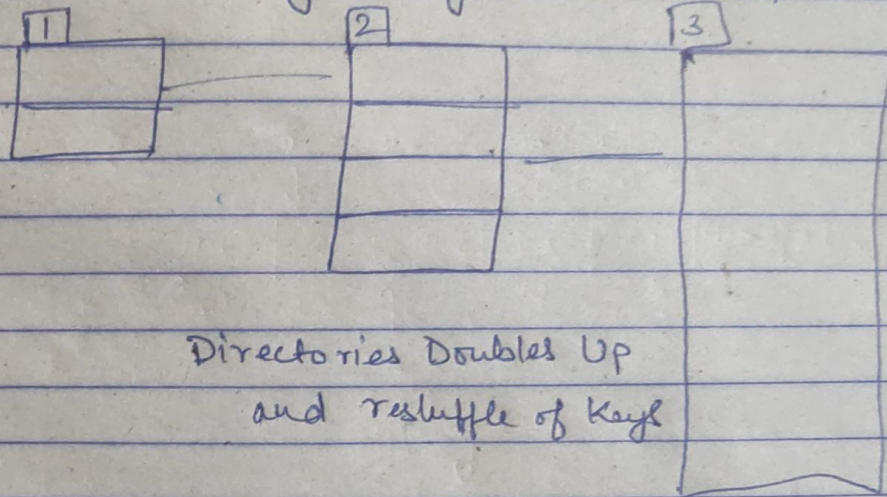 1 2 3
Directories Doubles Up
and resluffle of Keys